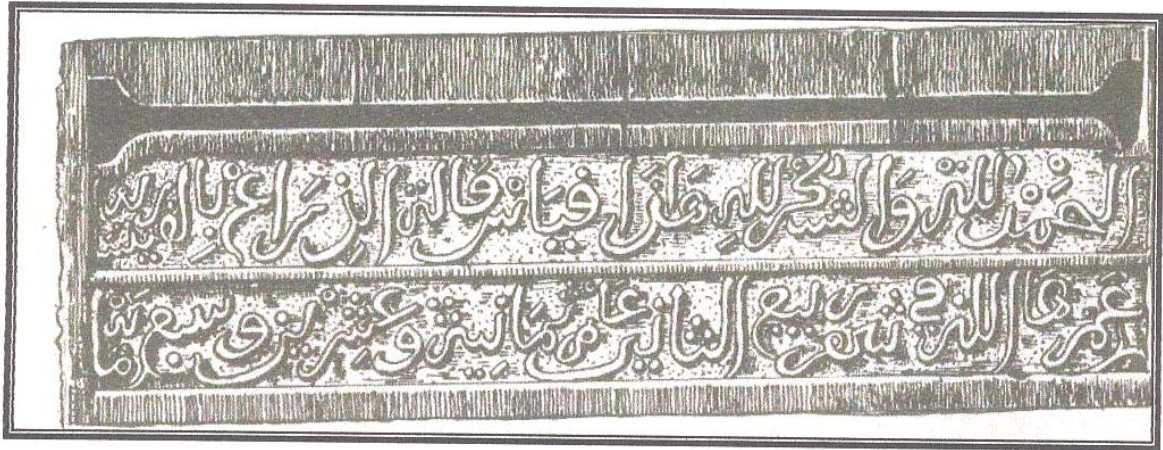 الحمد لله والشكر لله هذا قياس قالة الذراع بالقيسرية
عمرها الله في شهر ربيع الثاني عام ثمانية وعشرين وسبعمائة